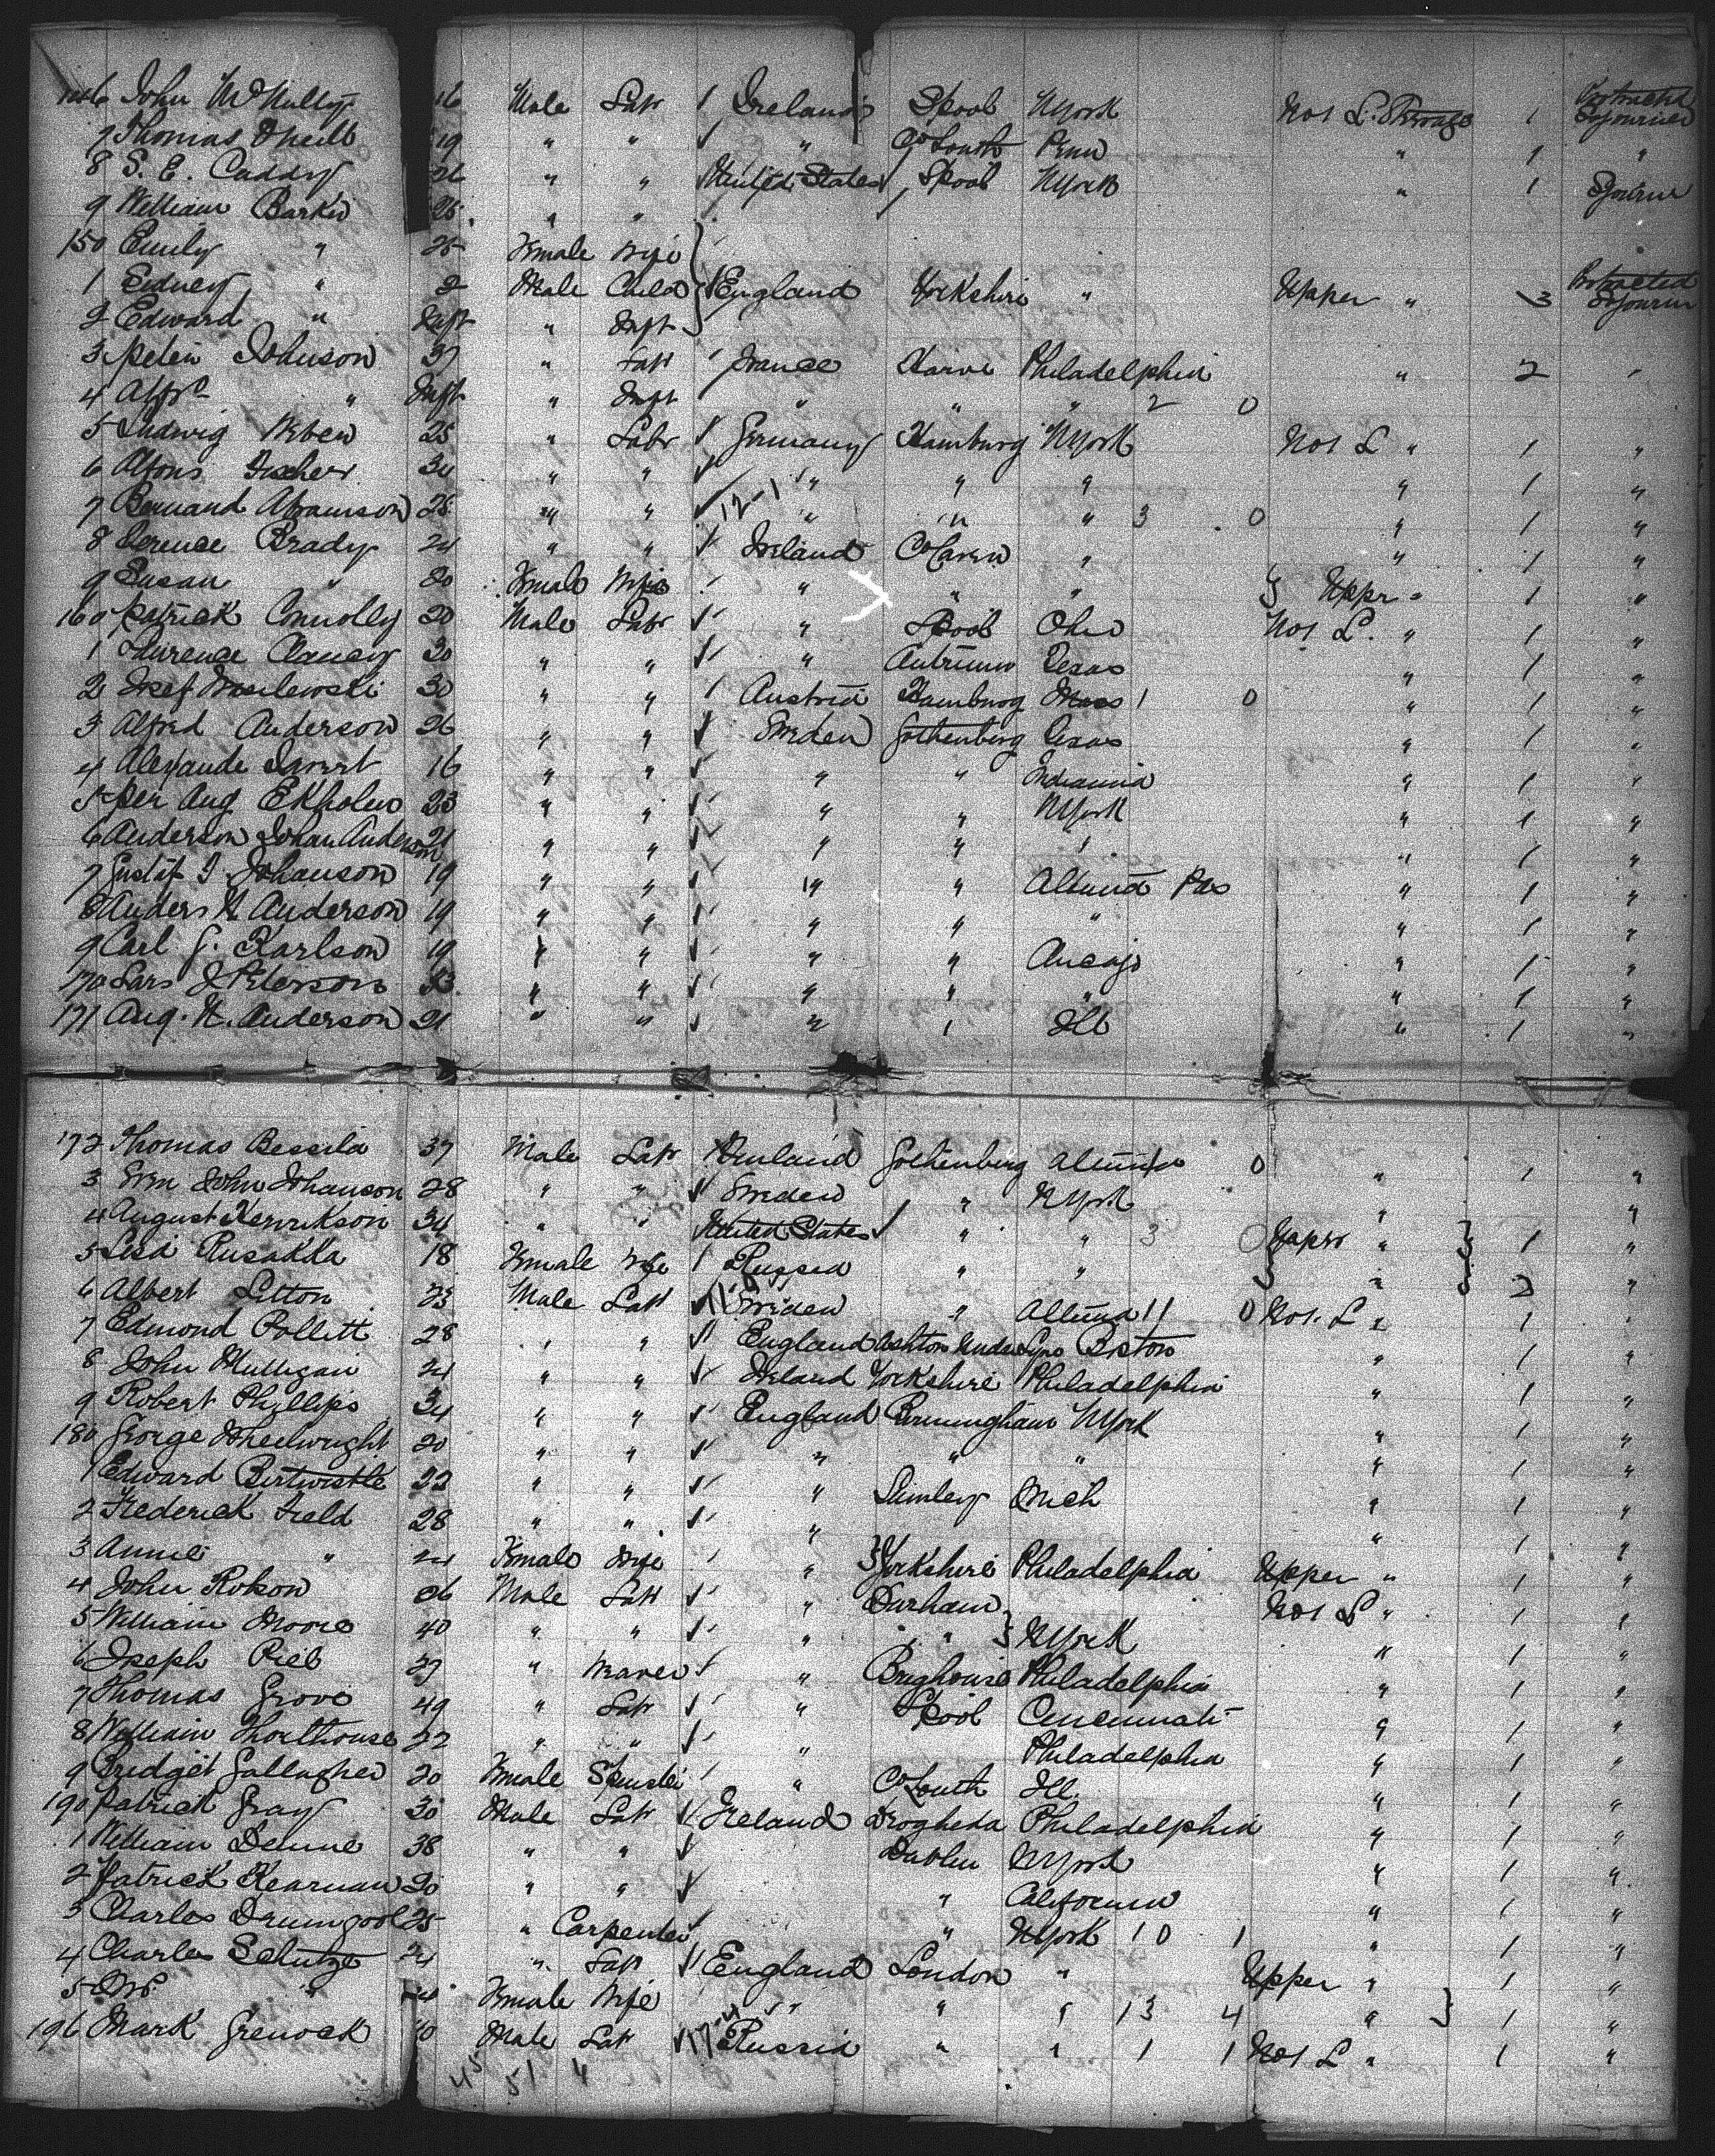 146 John McNulty 16 Male Labr Ireland Lpool NYork No 1 L. Steerage 1 Protracted Sojourner
7 Thomas Oneill 19 " " " Co Louth Penn " 1 "
8 S. E. Caddy 26 " " United States Lpool NYork " 1 Sojourn
9 William Barker 26 " "
150 Emily " 25 Female Wife
1 Sidney " 2 Male Child England Yorkshire " Upper " 3 Protracted Sojourn
2 Edward " Inft " Inft
3 Peter Johnson 37 " Labr France Harve Philadelphia " 2 "
4 Alfd " Inft " Inft " " " 2 0
5 Ludwig Weben 25 " Labr Germany Hamburg NYork No 1 L " 1 "
6 Alfons Fischer 30 " " " " " " 1 "
7 Bernand Abramson 28 " " 12-1 " " " 3 0 " 1 "
8 Terence Brady 24 " " Ireland Co Cavan " " 1 "
9 Susan " 20 Female Wife " " " Uppr " 1 "
160 Patrick Connolly 20 Male Labr " Lpool Ohio No 1 L. " 1 "
1 Laurence Clancy 30 " " " Antrium Texas " 1 "
2 Josef Wasilewski 30 " " Austria Hamburg Mass 1 0 " 1 "
3 Alfred Anderson 26 " " Sweden Gothenberg Texas " 1 "
4 Alexande 16 " " " " Indianna " 1 "
5 Per Aug Ekholm 23 " " " " NYork " 1 "
6 Anderson Johan Anderson 21 " " " " " " 1 "
7 Gustaf I Johanson 19 " " " " Altuna Pas " 1 "
8 Anders N Anderson 19 " " " " " " 1 "
9 Carl G. Karlson 19 " " " " " 1 "
170 Lars J Peterson 53 " " " " " " 1 "
171 Aug. N. Anderson 21 " " " " Ill " 1 "
172 Thomas Bessila 37 Male Labr Finland Gothenberg 0 " 1 "
3 Sven John Johanson 28 " " Sweden " NYork " "
4 August Henrikson 34 " " United States " " 3 0 Upper " 1 "
5 Lisa Rusakka 18 Female Wife Russia " " " 2 "
6 Albert Litton 23 Male Labr Sweden " Altuna 11 0 No 1. L " 1 "
7 Edmond Pollitt 28 " " England Ashton Under Lyne Boston " 1 "
8 John Mulligan 24 " " Ireland Yorkshire Philadelphia " 1 "
9 Robert Phyllips 34 " " England Birmingham NYork " 1 "
180 George Wheelwright 20 " " " " " " 1 "
1 Edward Birtwistle 22 " " " Mich " 1 "
2 Frederick Field 28 " " " " 1 "
3 Annie " 24 Female Wife " Yorkshire Philadelphia Upper " 1 "
4 John Robson 26 Male Labr " Durham No 1 L " 1 "
5 William Moore 40 " " " " NYork " 1 "
6 Joseph Pieb 27 " Weaver " Brighouse Philadelphia " 1 "
7 Thomas Grove 49 " Labr " Lpool Cincinnati " 1 "
8 William 22 " " " Philadelphia " 1 "
9 Bridget Gallagher 20 Female Spinster " Co Louth Ill. " 1 "
190 Patrick Gray 30 Male Labr Ireland Drogheda Philadelphia " 1 "
1 William Denne 38 " " Dublin NYork " 1 "
2 Patrick Kearnan 20 " " " California " 1 "
3 Charles Drumgool 25 " Carpenter " NYork 10 1 " 1 "
4 Charles Schutze 24 " Labr England London " Upper " 1 "
5 Mrs " 24 Female Wife " " " 13 4 " 1 "
196 Mark Grenock 40 Male Labr Russia " " 1 1 No 1 L " 1 "
45 51 4